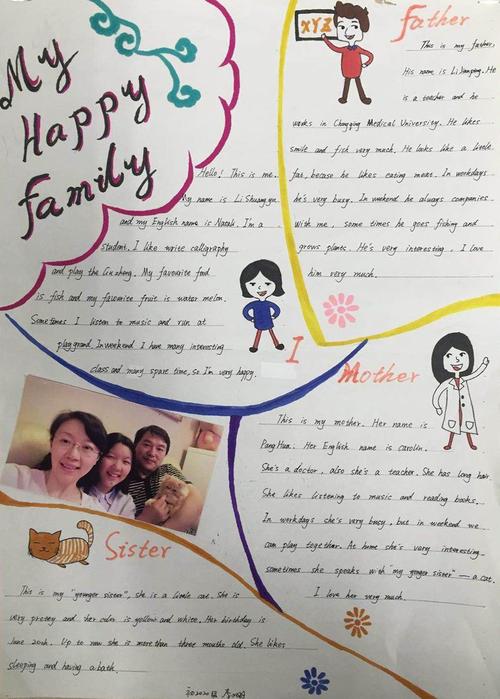 My
Happy
family
Hello! This is me.
My name is Li Shuang yue
and my English name is Natali. I'm a
student. I like write calligraphy
and play the Gu zheng. My favourite food
is fish and my favourite fruit is water melon.
Sometimes I listen to music and run at
playgrand. In weekend I have many interesting
class and many spare time, so I'm very happy.
I
XYZ
father
This is my father.
His name is Li Jianping. He
is a teacher and he
works in Chongqing Medical University. He likes
smile and fish very much. He looks like a little
fat, becase he likes eating meat. In weekdays
he's very busy. In weekend he always companies
with me, some times he goes fishing and
grows plants. He's very interesting. I love
him very much.
Mother
This is my mother. Her name is
Pang Hua. Her English name is carolin.
She's a doctor, also she's a teacher. She has long hair
She likes listening to music and reading books.
In workdays she's very busy, but in weekend we
can play together. At home she's very interesting
sometimes she speaks with "my yonger sister" — a cat.
I love her very much.
Sister
This is my "younger sister", she is a little cat. She is
very pretty and her color is yellow and white. Her birthday is
June 20th. Up to now she is more than three months old. She likes
sleeping and having a bath.
初2020届